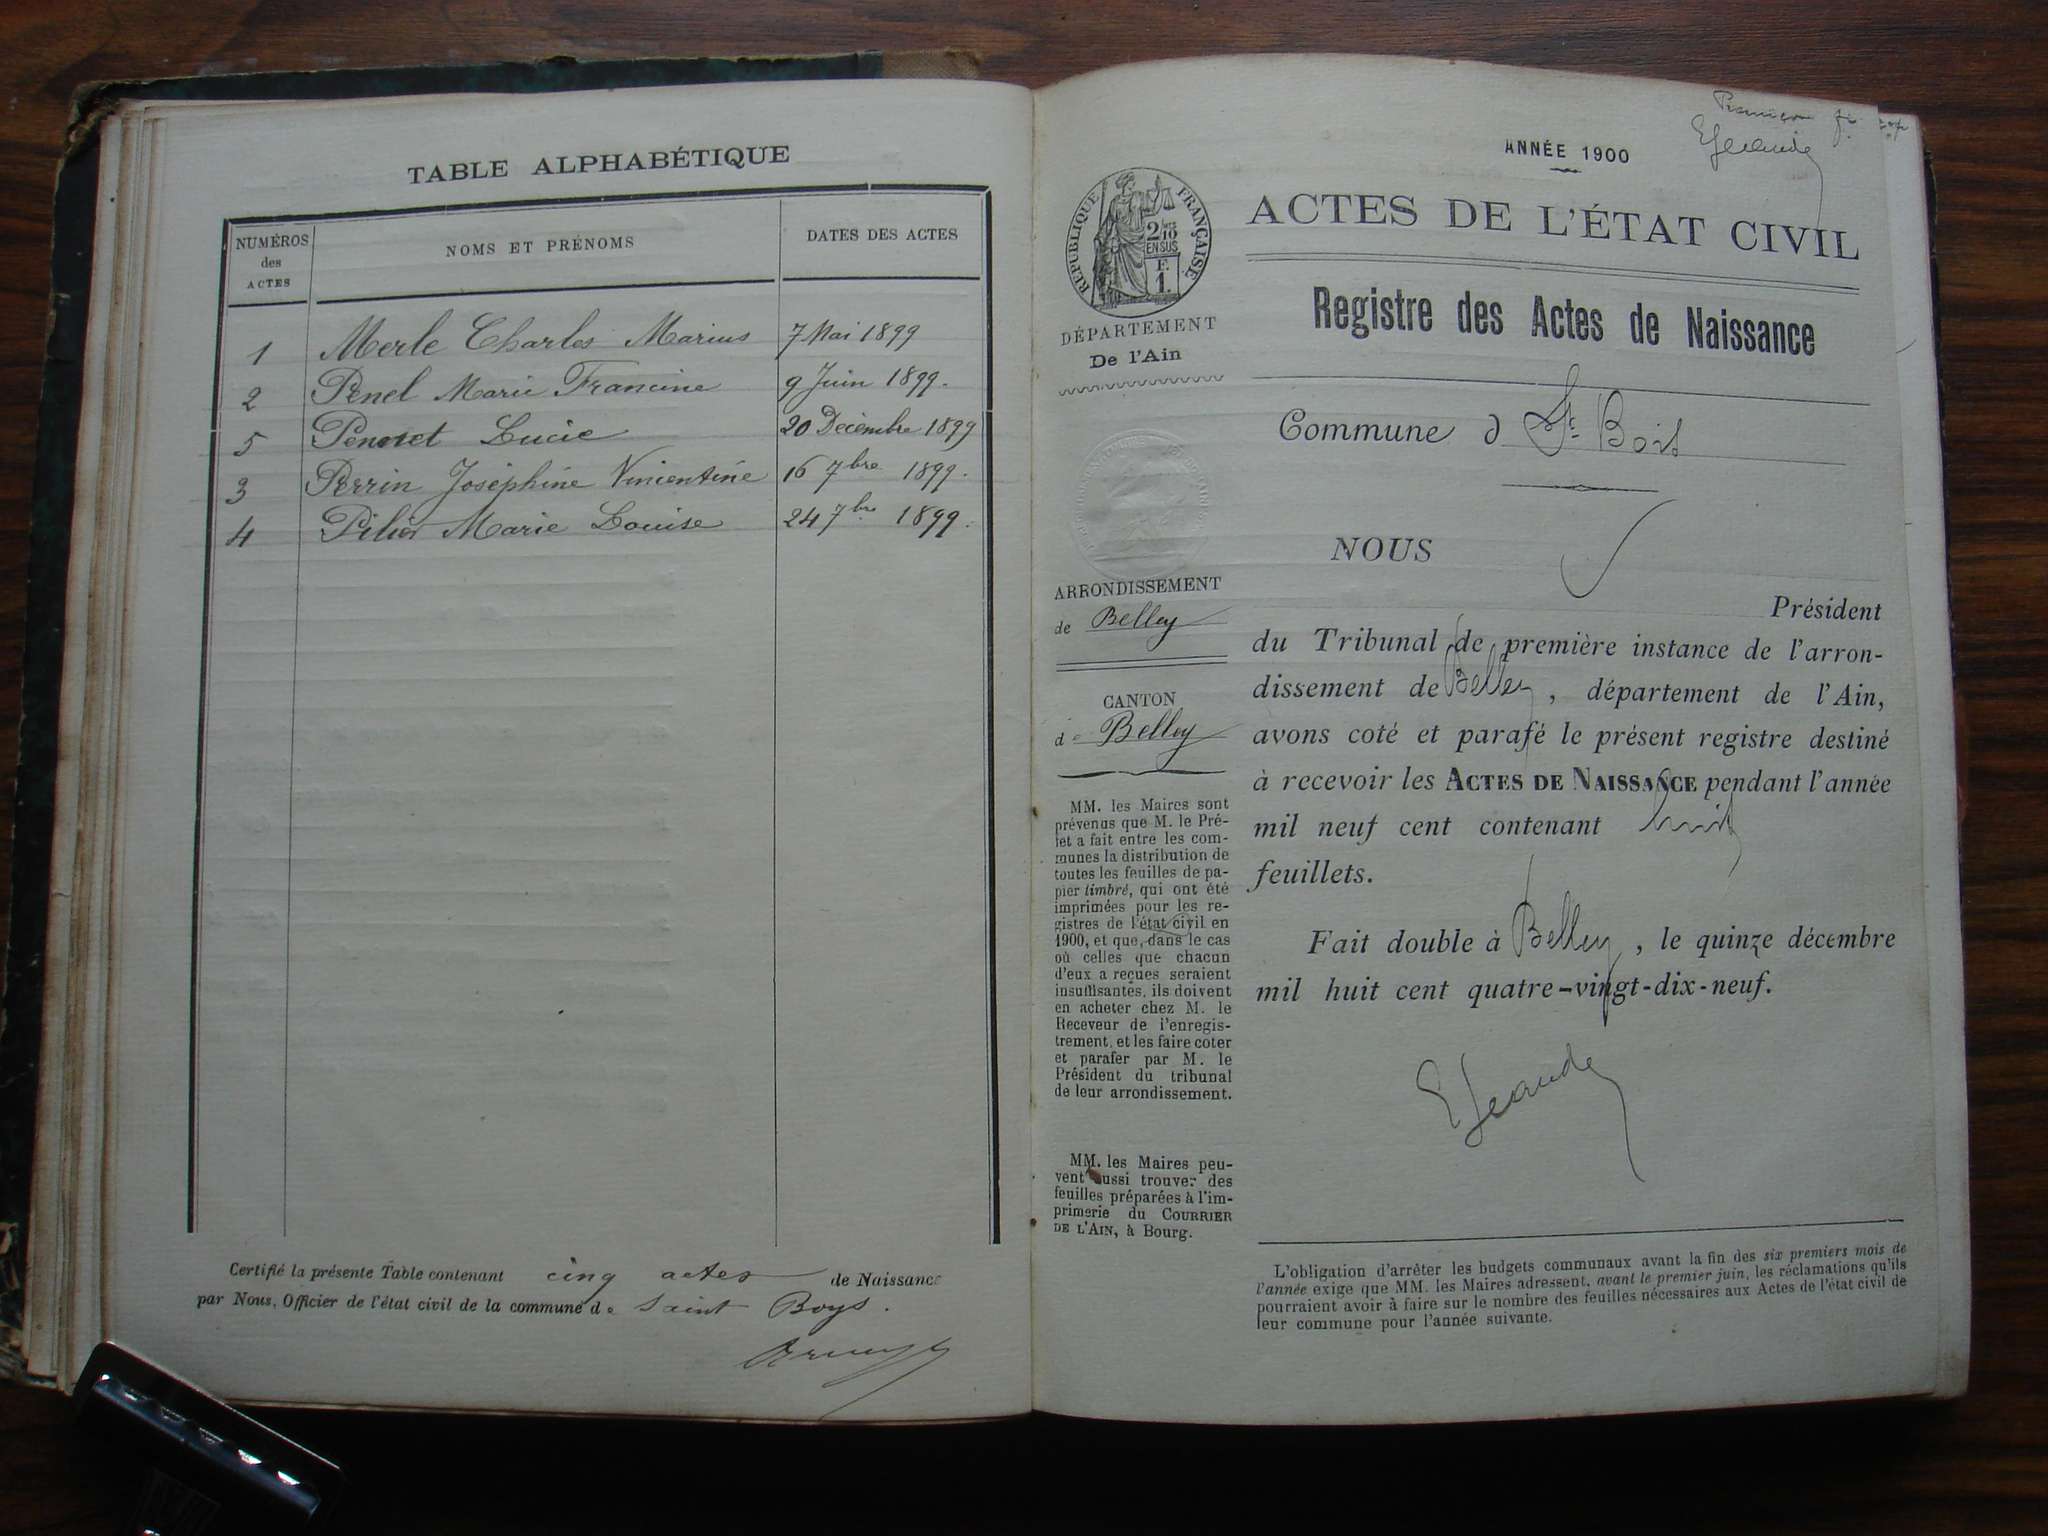 TABLE ALPHABÉTIQUE
NUMÉROS des ACTES
NOMS ET PRÉNOMS
DATES DES ACTES
1 Merle Charles Marius 7 Mai 1899
2 Penel Marie Francine 9 Juin 1899.
5 Lucie 20 Décembre 1899
3 Perrin Joséphine Vincentine 16 7bre 1899.
4 Marie Louise 24 7bre 1899.
Certifié la présente Table contenant cinq actes de Naissance
par Nous, Officier de l'état civil de la commune de Saint Boys.
ANNÉE 1900
RÉPUBLIQUE FRANÇAISE
2/10 EN SUS
F. 1.
DÉPARTEMENT
De l'Ain
ARRONDISSEMENT
de Belley
CANTON
de Belley
MM. les Maires sont
prévenus que M. le Pré-
fet a fait entre les com-
munes la distribution de
toutes les feuilles de pa-
pier timbré, qui ont été
imprimées pour les re-
gistres de l'état civil en
1900, et que, dans le cas
où celles que chacun
d'eux a reçues seraient
insuffisantes, ils doivent
en acheter chez M. le
Receveur de l'enregis-
trement, et les faire coter
et parafer par M. le
Président du tribunal
de leur arrondissement.
MM. les Maires peu-
vent aussi trouver des
feuilles préparées à l'im-
primerie du COURRIER
DE L'AIN, à Bourg.
ACTES DE L'ÉTAT CIVIL
Registre des Actes de Naissance
Commune d St Bois
NOUS
Président
du Tribunal de première instance de l'arron-
dissement de Belley, département de l'Ain,
avons coté et parafé le présent registre destiné
à recevoir les ACTES DE NAISSANCE pendant l'année
mil neuf cent contenant huit
feuillets.
Fait double à Belley, le quinze décembre
mil huit cent quatre-vingt-dix-neuf.
L'obligation d'arrêter les budgets communaux avant la fin des six premiers mois de
l'année exige que MM. les Maires adressent, avant le premier juin, les réclamations qu'ils
pourraient avoir à faire sur le nombre des feuilles nécessaires aux Actes de l'état civil de
leur commune pour l'année suivante.